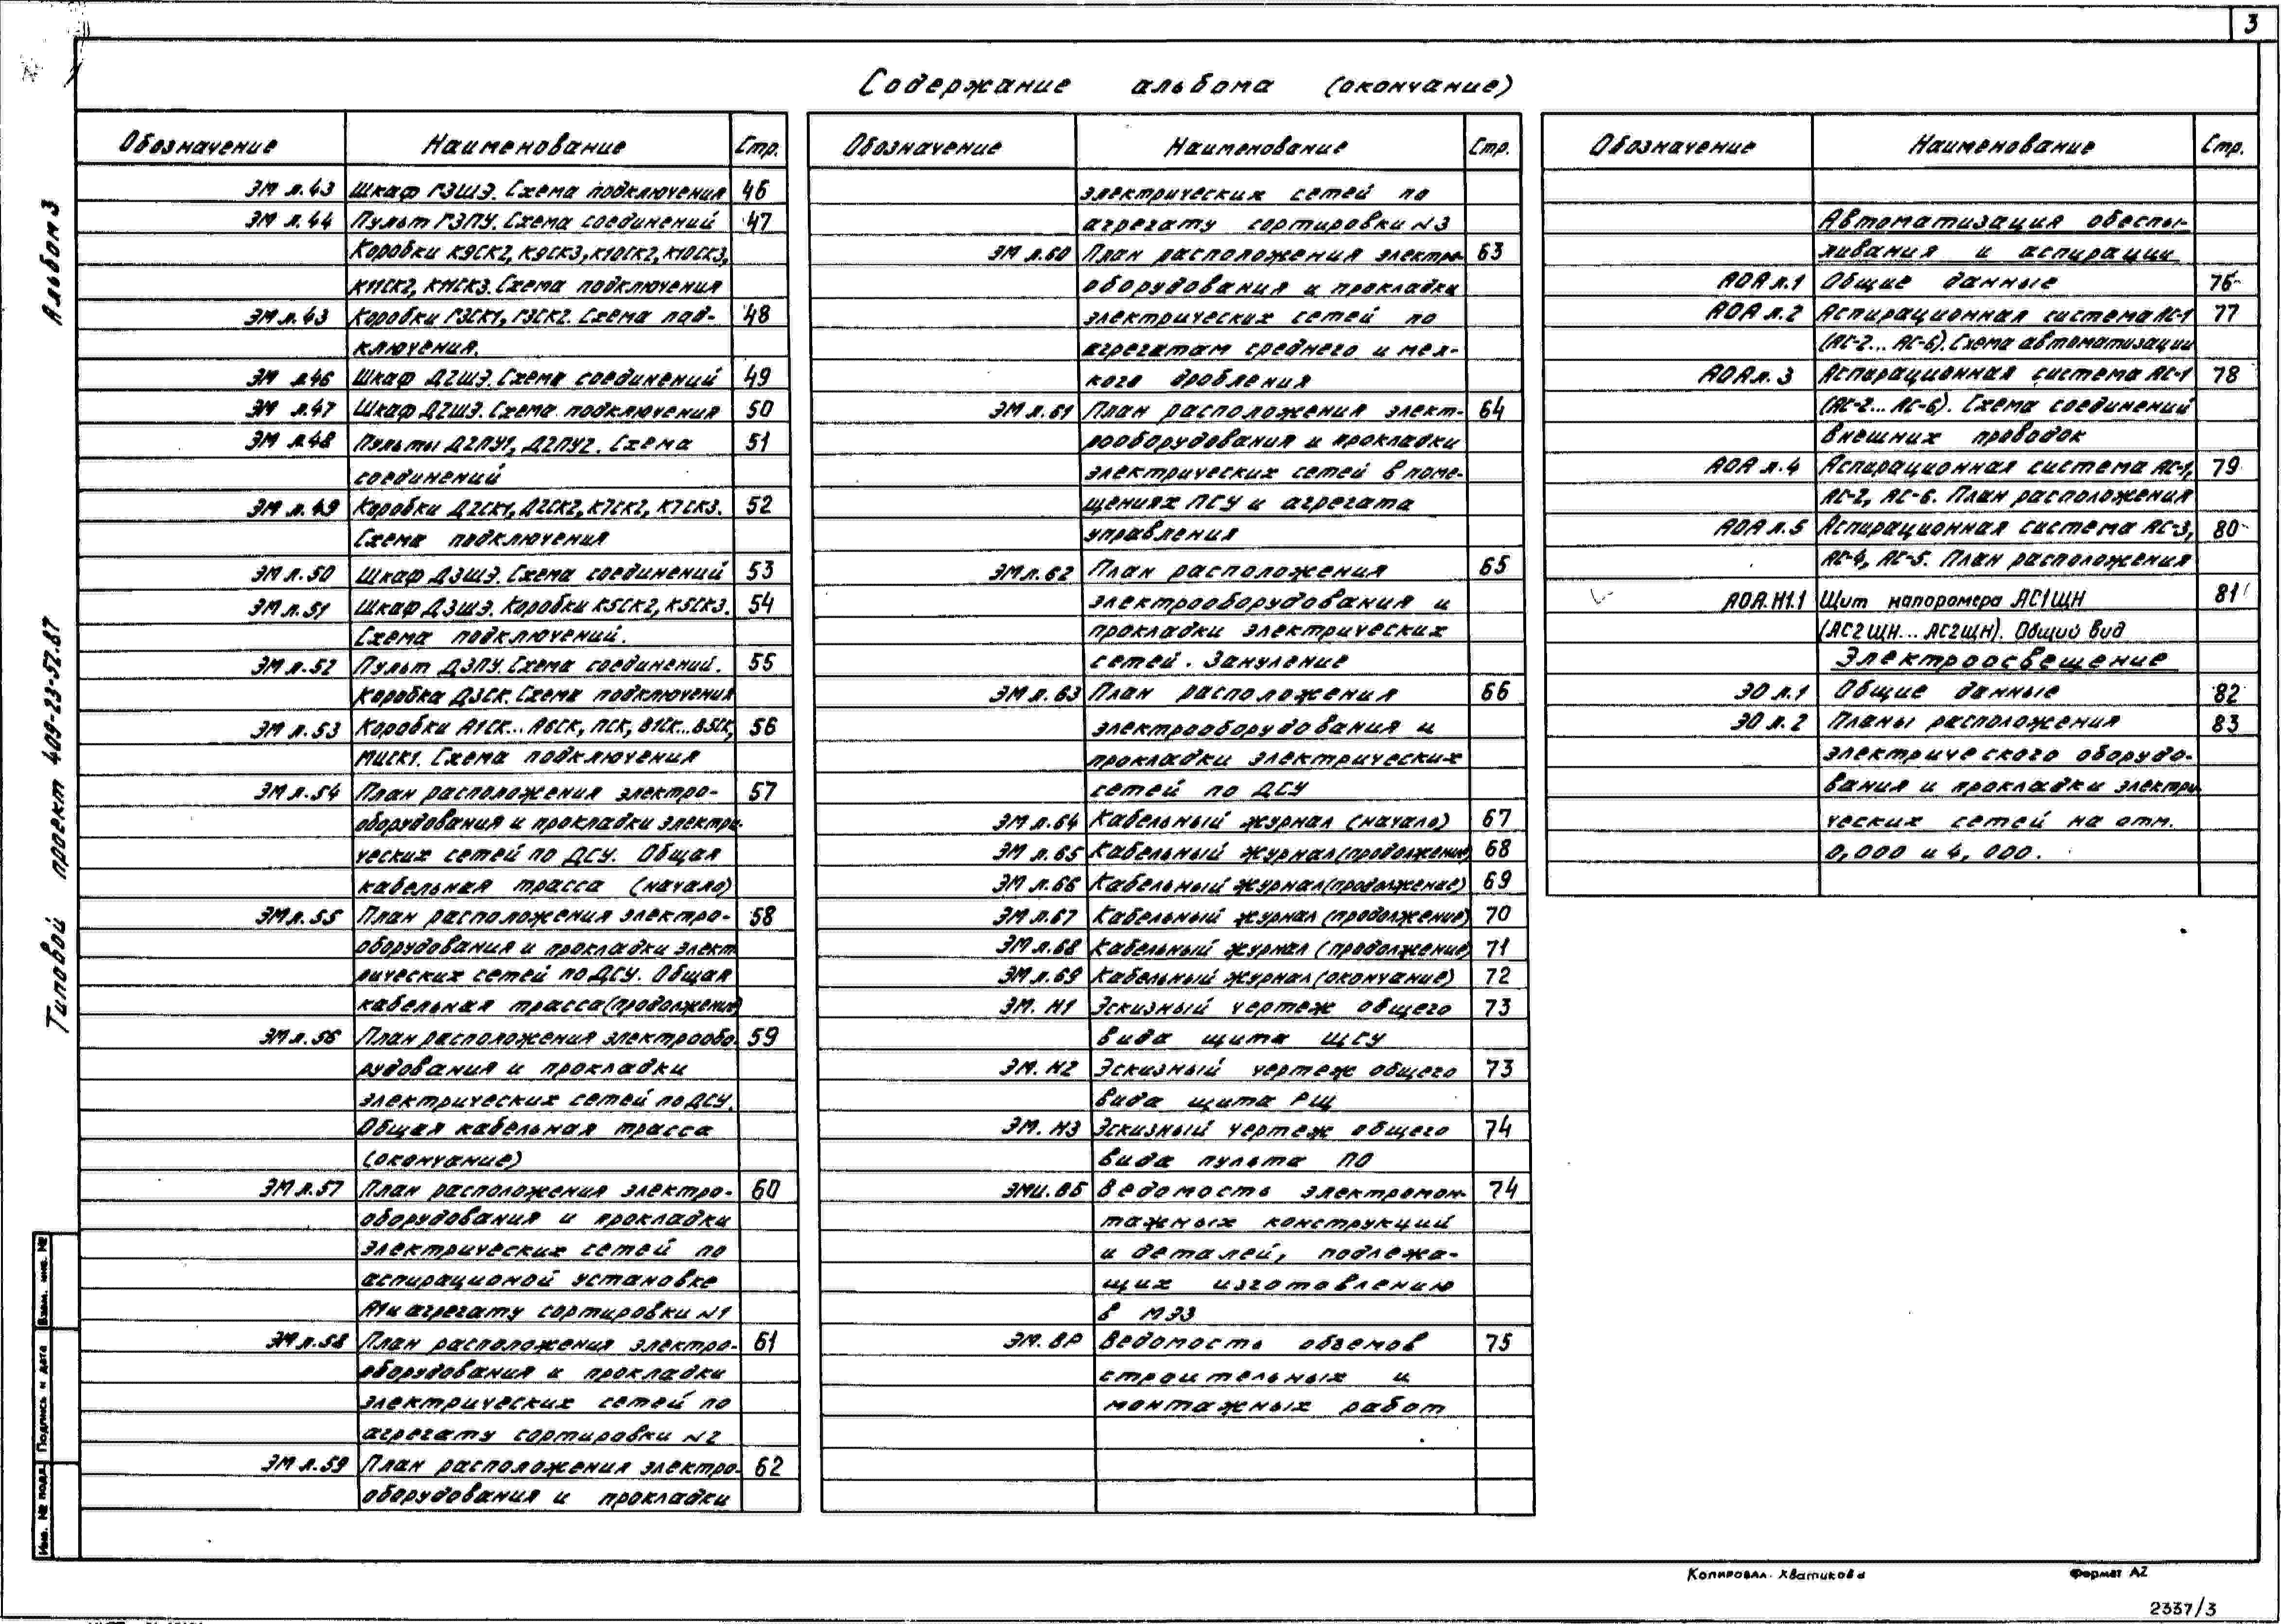 3
Содержание альбома (окончание)
Альбом 3
Типовой проект 409-23-52.87
Обозначение Наименование Стр.
ЭМ л.43 Шкаф Г3ШЭ. Схема подключения 46
ЭМ л.44 Пульт Г3ПУ. Схема соединений 47
Коробки К9СК2, К9СК3, К10СК2, К10СК3,
К11СК2, К11СК3. Схема подключения
ЭМ л.43 Коробки Г3СК1, Г3СК2. Схема под- 48
ключения.
ЭМ л.46 Шкаф Д2ШЭ. Схема соединений 49
ЭМ л.47 Шкаф Д2ШЭ. Схема подключения 50
ЭМ л.48 Пульты Д2ПУ1, Д2ПУ2. Схема 51
соединений
ЭМ л.49 Коробки Д2СК1, Д2СК2, К7СК2, К7СК3. 52
Схема подключения
ЭМ л.50 Шкаф Д3ШЭ. Схема соединений 53
ЭМ л.51 Шкаф Д3ШЭ. Коробки К5СК2, К5СК3. 54
Схема подключений.
ЭМ л.52 Пульт Д3ПУ. Схема соединений. 55
Коробка Д3СК. Схема подключения
ЭМ л.53 Коробки А1СК... А6СК, ПСК, В1СК... В5СК, 56
МИСК1. Схема подключения
ЭМ л.54 План расположения электро- 57
оборудования и прокладки электри-
ческих сетей по ДСУ. Общая
кабельная трасса (начало)
ЭМ л.55 План расположения электро- 58
оборудования и прокладки элект
рических сетей по ДСУ. Общая
кабельная трасса (продолжение)
ЭМ л.56 План расположения электрообо- 59
рудования и прокладки
электрических сетей по ДСУ.
Общая кабельная трасса
(окончание)
ЭМ л.57 План расположения электро- 60
оборудования и прокладки
электрических сетей по
аспирационой установке
А1 и агрегату сортировки N1
ЭМ л.58 План расположения электро- 61
оборудования и прокладки
электрических сетей по
агрегату сортировки N2
ЭМ л.59 План расположения электро- 62
оборудования и прокладки
Обозначение Наименование Стр.
электрических сетей по
агрегату сортировки N3
ЭМ л.60 План расположения электро- 63
оборудования и прокладки
электрических сетей по
агрегатам среднего и мел-
кого дробления
ЭМ л.61 План расположения элект- 64
рооборудования и прокладки
электрических сетей в поме-
щениях ПСУ и агрегата
управления
ЭМ л.62 План расположения 65
электрооборудования и
прокладки электрических
сетей. Зануление
ЭМ л.63 План расположения 66
электрооборудования и
прокладки электрических
сетей по ДСУ
ЭМ л.64 Кабельный журнал (начало) 67
ЭМ л.65 Кабельный журнал (продолжение) 68
ЭМ л.66 Кабельный журнал (продолжение) 69
ЭМ л.67 Кабельный журнал (продолжение) 70
ЭМ л.68 Кабельный журнал (продолжение) 71
ЭМ л.69 Кабельный журнал (окончание) 72
ЭМ. Н1 Эскизный чертеж общего 73
вида щита ЩСУ
ЭМ. Н2 Эскизный чертеж общего 73
вида щита РЩ
ЭМ. Н3 Эскизный чертеж общего 74
вида пульта ПО
ЭМИ. ВБ Ведомость электромон- 74
тажных конструкций
и деталей, подлежа-
щих изготовлению
в МЭЗ
ЭМ. ВР Ведомость обземов 75
строительных и
монтажных работ
Обозначение Наименование Стр.
Автоматизация обеспы-
ливания и аспирации
АОА л.1 Общие данные 76
АОА л.2 Аспирационная система АС-1 77
(АС-2... АС-6). Схема автоматизации
АОА л.3 Аспирационная система АС-1 78
(АС-2... АС-6). Схема соединений
внешних проводок
АОА л.4 Аспирационная система АС-1, 79
АС-2, АС-6. План расположения
АОА л.5 Аспирационная система АС-3, 80
АС-4, АС-5. План расположения
АОА.Н1.1 Щит напоромера АС1ЩН 81
(АС2ЩН... АС2ЩН). Общий вид
Электроосвещение
ЭО л.1 Общие данные 82
ЭО л.2 Планы расположения 83
электрического оборудо-
вания и прокладки электри
ческих сетей на отм.
0,000 и 4,000.
Инв. № подл. Подпись и дата Взам. инв. №
Копировал. Хватикова Формат А2
2337/3